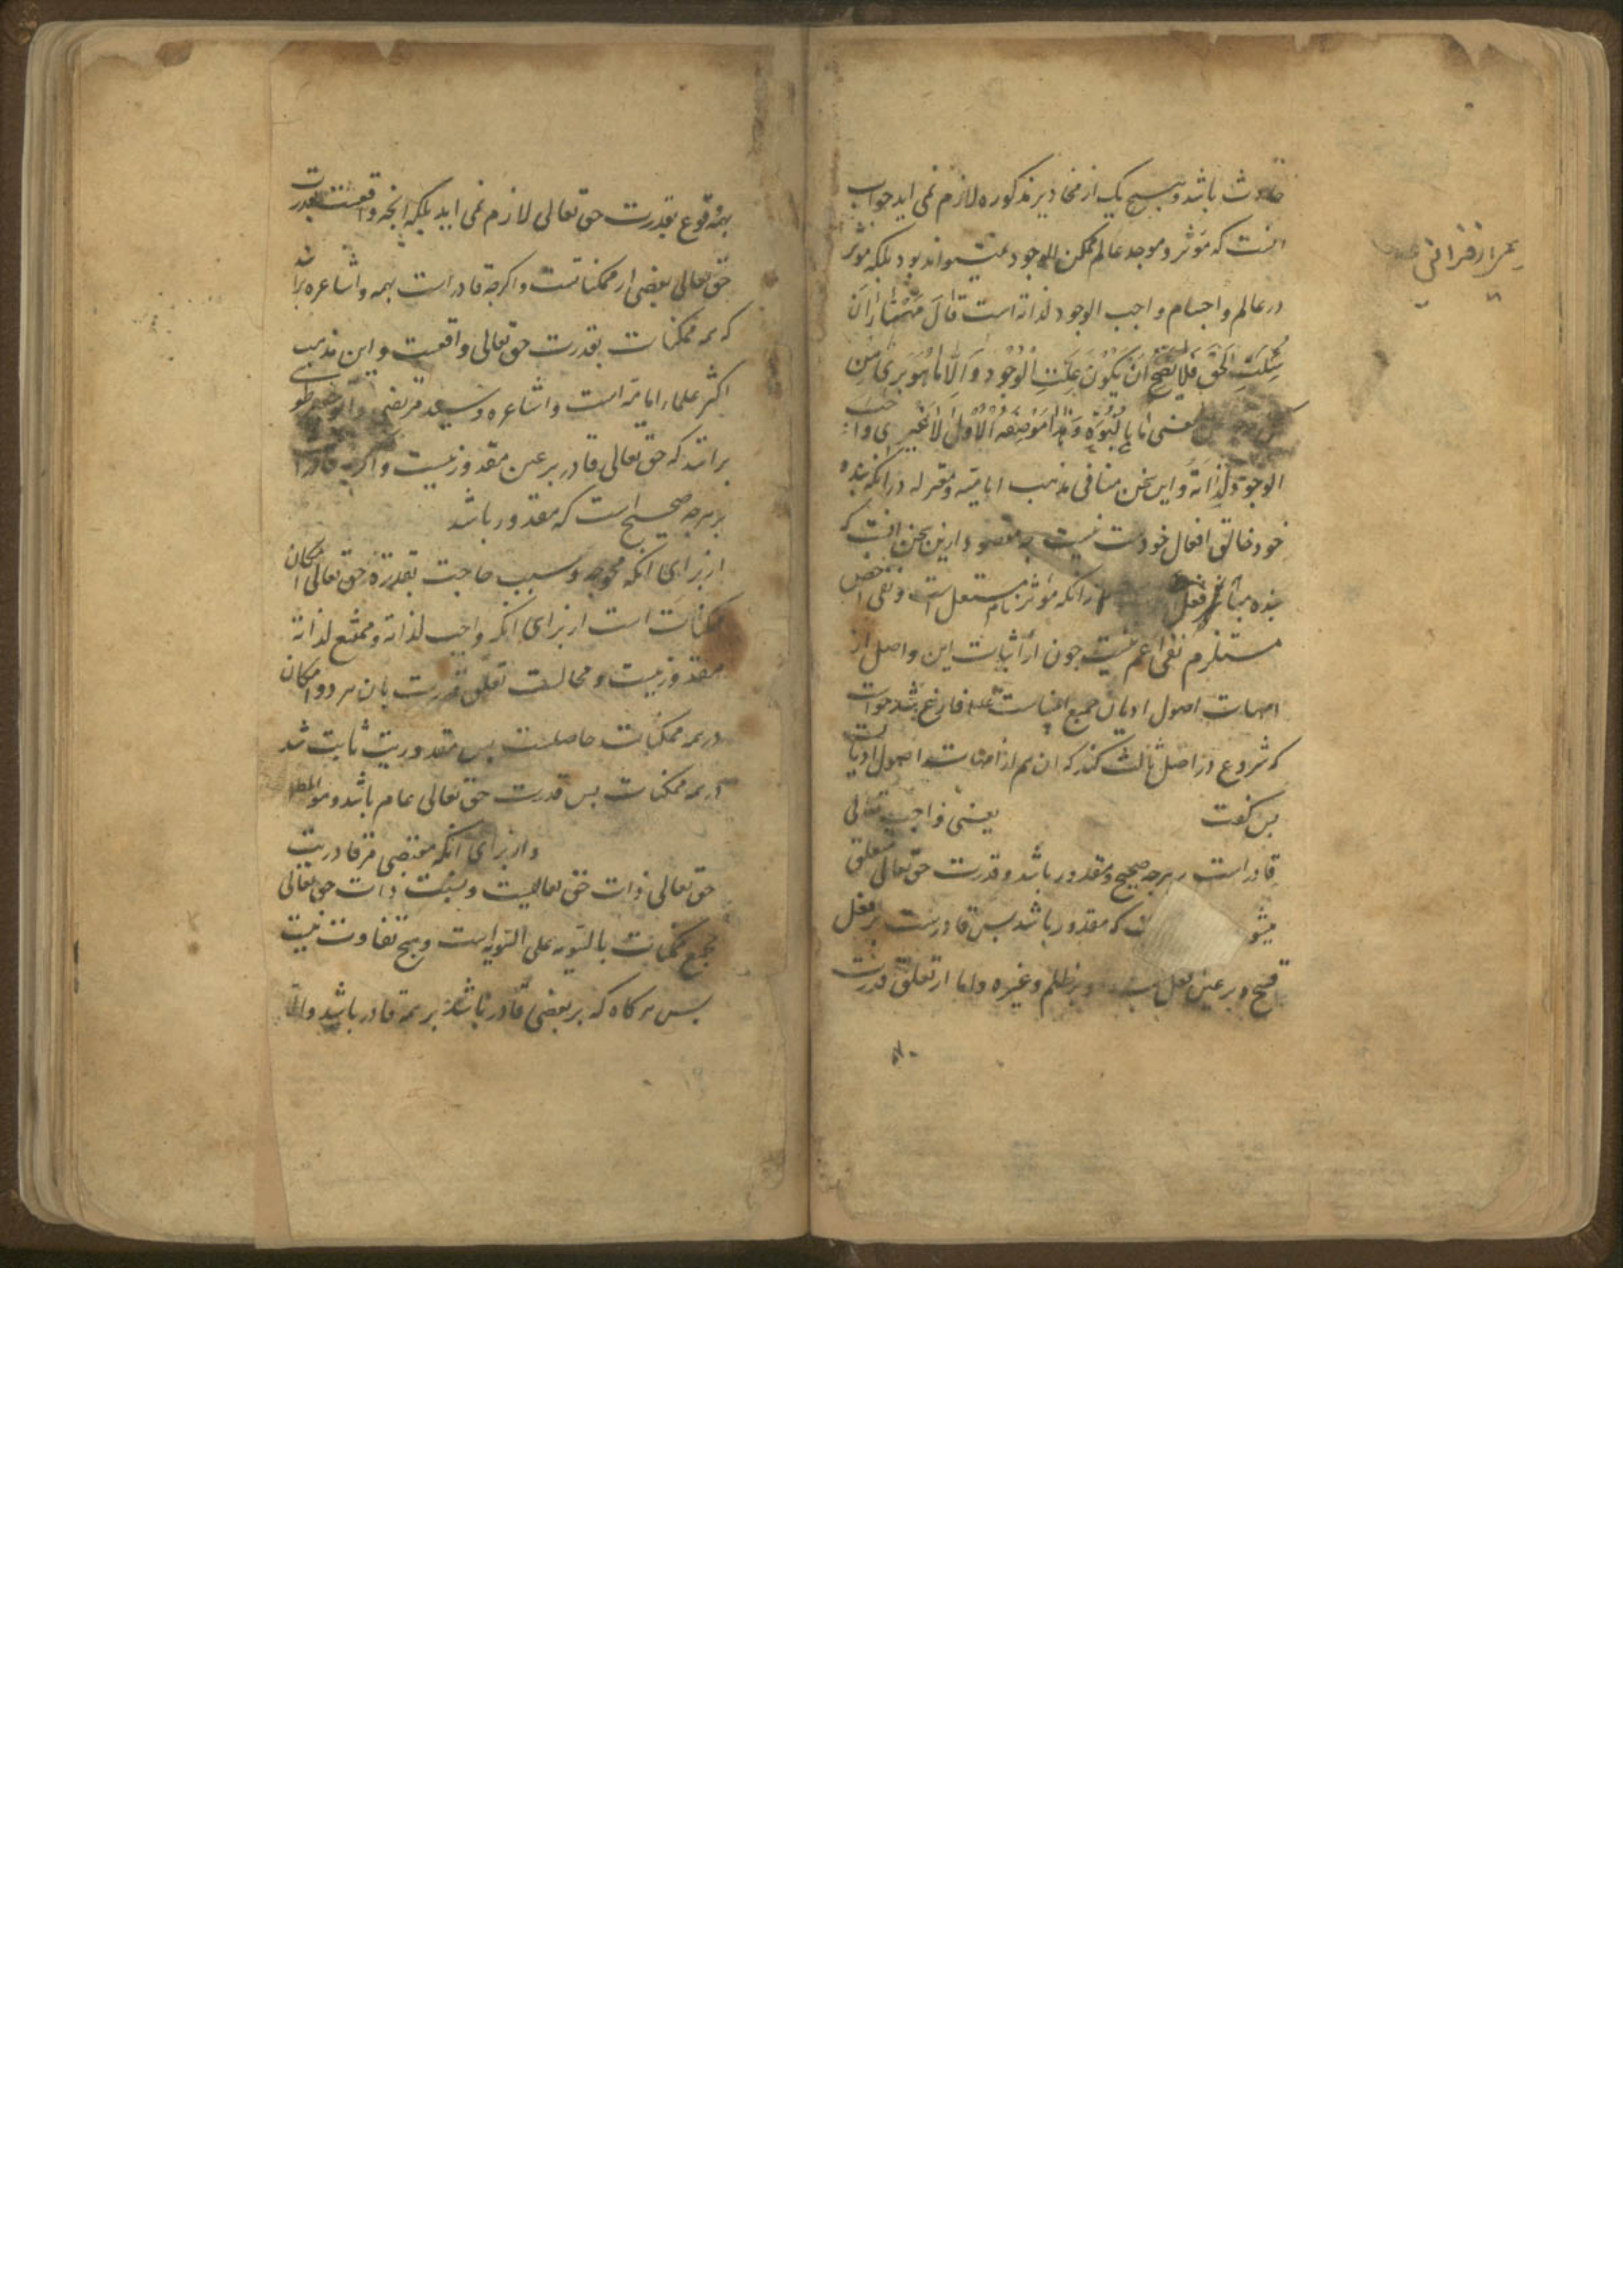 حادث باشد و هیچ یک از محاذیر مذکوره لازم نمی اید جواب
انست که مؤثر و موجد عالم ممکن الوجود نمیتواند بود بلکه مؤثر
در عالم و اجسام واجب الوجود لذاته است قال
سئلت الحق فلا یصح ان یکون علت الوجود الا ما هو بری من
کل یعنی ما بالقوه و هذا هو صفة الاول لا غیر ای واجب
الوجود لذاته و این سخن منافی مذهب امامیه و معتزله در انکه بنده
خود خالق افعال خودست نیست چه مقصود ازین سخن انست که
بنده مباشر فعل از انکه مؤثر تام مستقل است و نفی اخص
مستلزم نفی اعم نیست چون از اثبات این واصل از
امهات اصول ادیان جمیع انبیاست فارغ شد خواست
که شروع در اصل ثالث کند که ان هم از امهات اصول ادیانست
پس گفت یعنی واجب تعالی
قادر است بر هرچه صحیح و مقدور باشد و قدرت حق تعالی متعلق
میشو که مقدور باشد پس قادرست بر فعل
قبیح و بر عین فعل و بر ظلم و غیره و اما از تعلق قدرت
بهمه وقوع بقدرت حق تعالی لازم نمی اید بلکه انچه واقعست بقدرت
حق تعالی بعضی از ممکناتست و اگرچه قادر است بهمه و اشاعره برانند
که همه ممکنات بقدرت حق تعالی واقعست و این مذهب
اکثر علماء امامیه است و اشاعره و سید مرتضی و ابو جعفر طوسی
برانند که حق تعالی قادر بر عین مقدور نیست و اگرچه قادر
بر هرچه صحیح است که مقدور باشد
از برای انکه محوجه و سبب حاجت بقدرة حق تعالی امکان
ممکنات است از برای انکه واجب لذاته و ممتنع لذاته
مقدور نیست و محالست تعلق قدرت بان هر دو و امکان
در همه ممکنات حاصلست پس مقدوریت ثابت شد
در همه ممکنات پس قدرت حق تعالی عام باشد و هو المطلوب
و از برای انکه مقتضی مر قادریت
حق تعالی ذات حق تعالیست و نسبت ذات حق تعالی
بجمیع ممکنات بالسویه علی السویه است و هیچ تفاوت نیست
پس هرگاه که بر بعضی قادر باشد بر همه قادر باشد والا